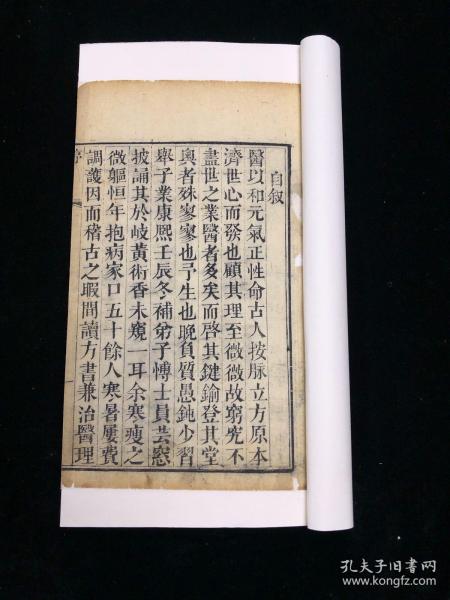 自叙
醫以和元氣正性命古人按脉立方原本
濟世心而發也顧其理至微微故窮究不
盡世之業醫者多矣而啓其鍵鑰登其堂
奥者殊寥寥也予生也晚負質愚鈍少習
舉子業康熙壬辰冬補弟子博士員芸窓
披誦其於岐黄術香未窺一耳余寒瘦之
微軀恒年抱病家口五十餘人寒暑屢費
調護因而稽古之暇間讀方書兼治醫理
孔夫子旧书网
www.kongfz.com